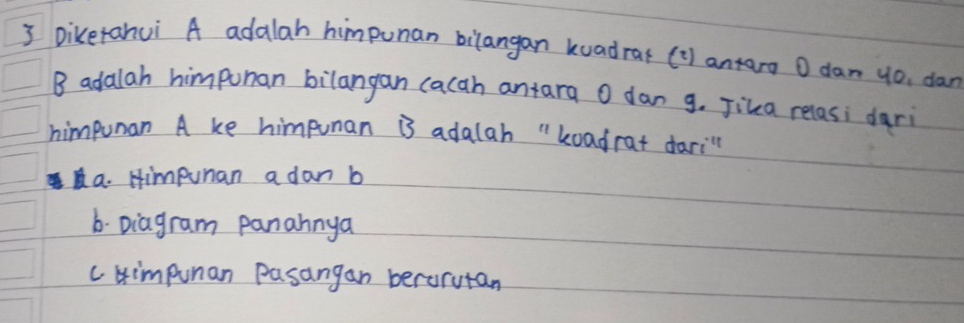 3 Diketahui A adalah himpunan bilangan kuadrat (²) antara 0 dan 40, dan
B adalah himpunan bilangan cacah antara 0 dan 9. Jika relasi dari
himpunan A ke himpunan B adalah "kuadrat dari"
a. Himpunan a dan b
b. Diagram panahnya
c Himpunan Pasangan berurutan